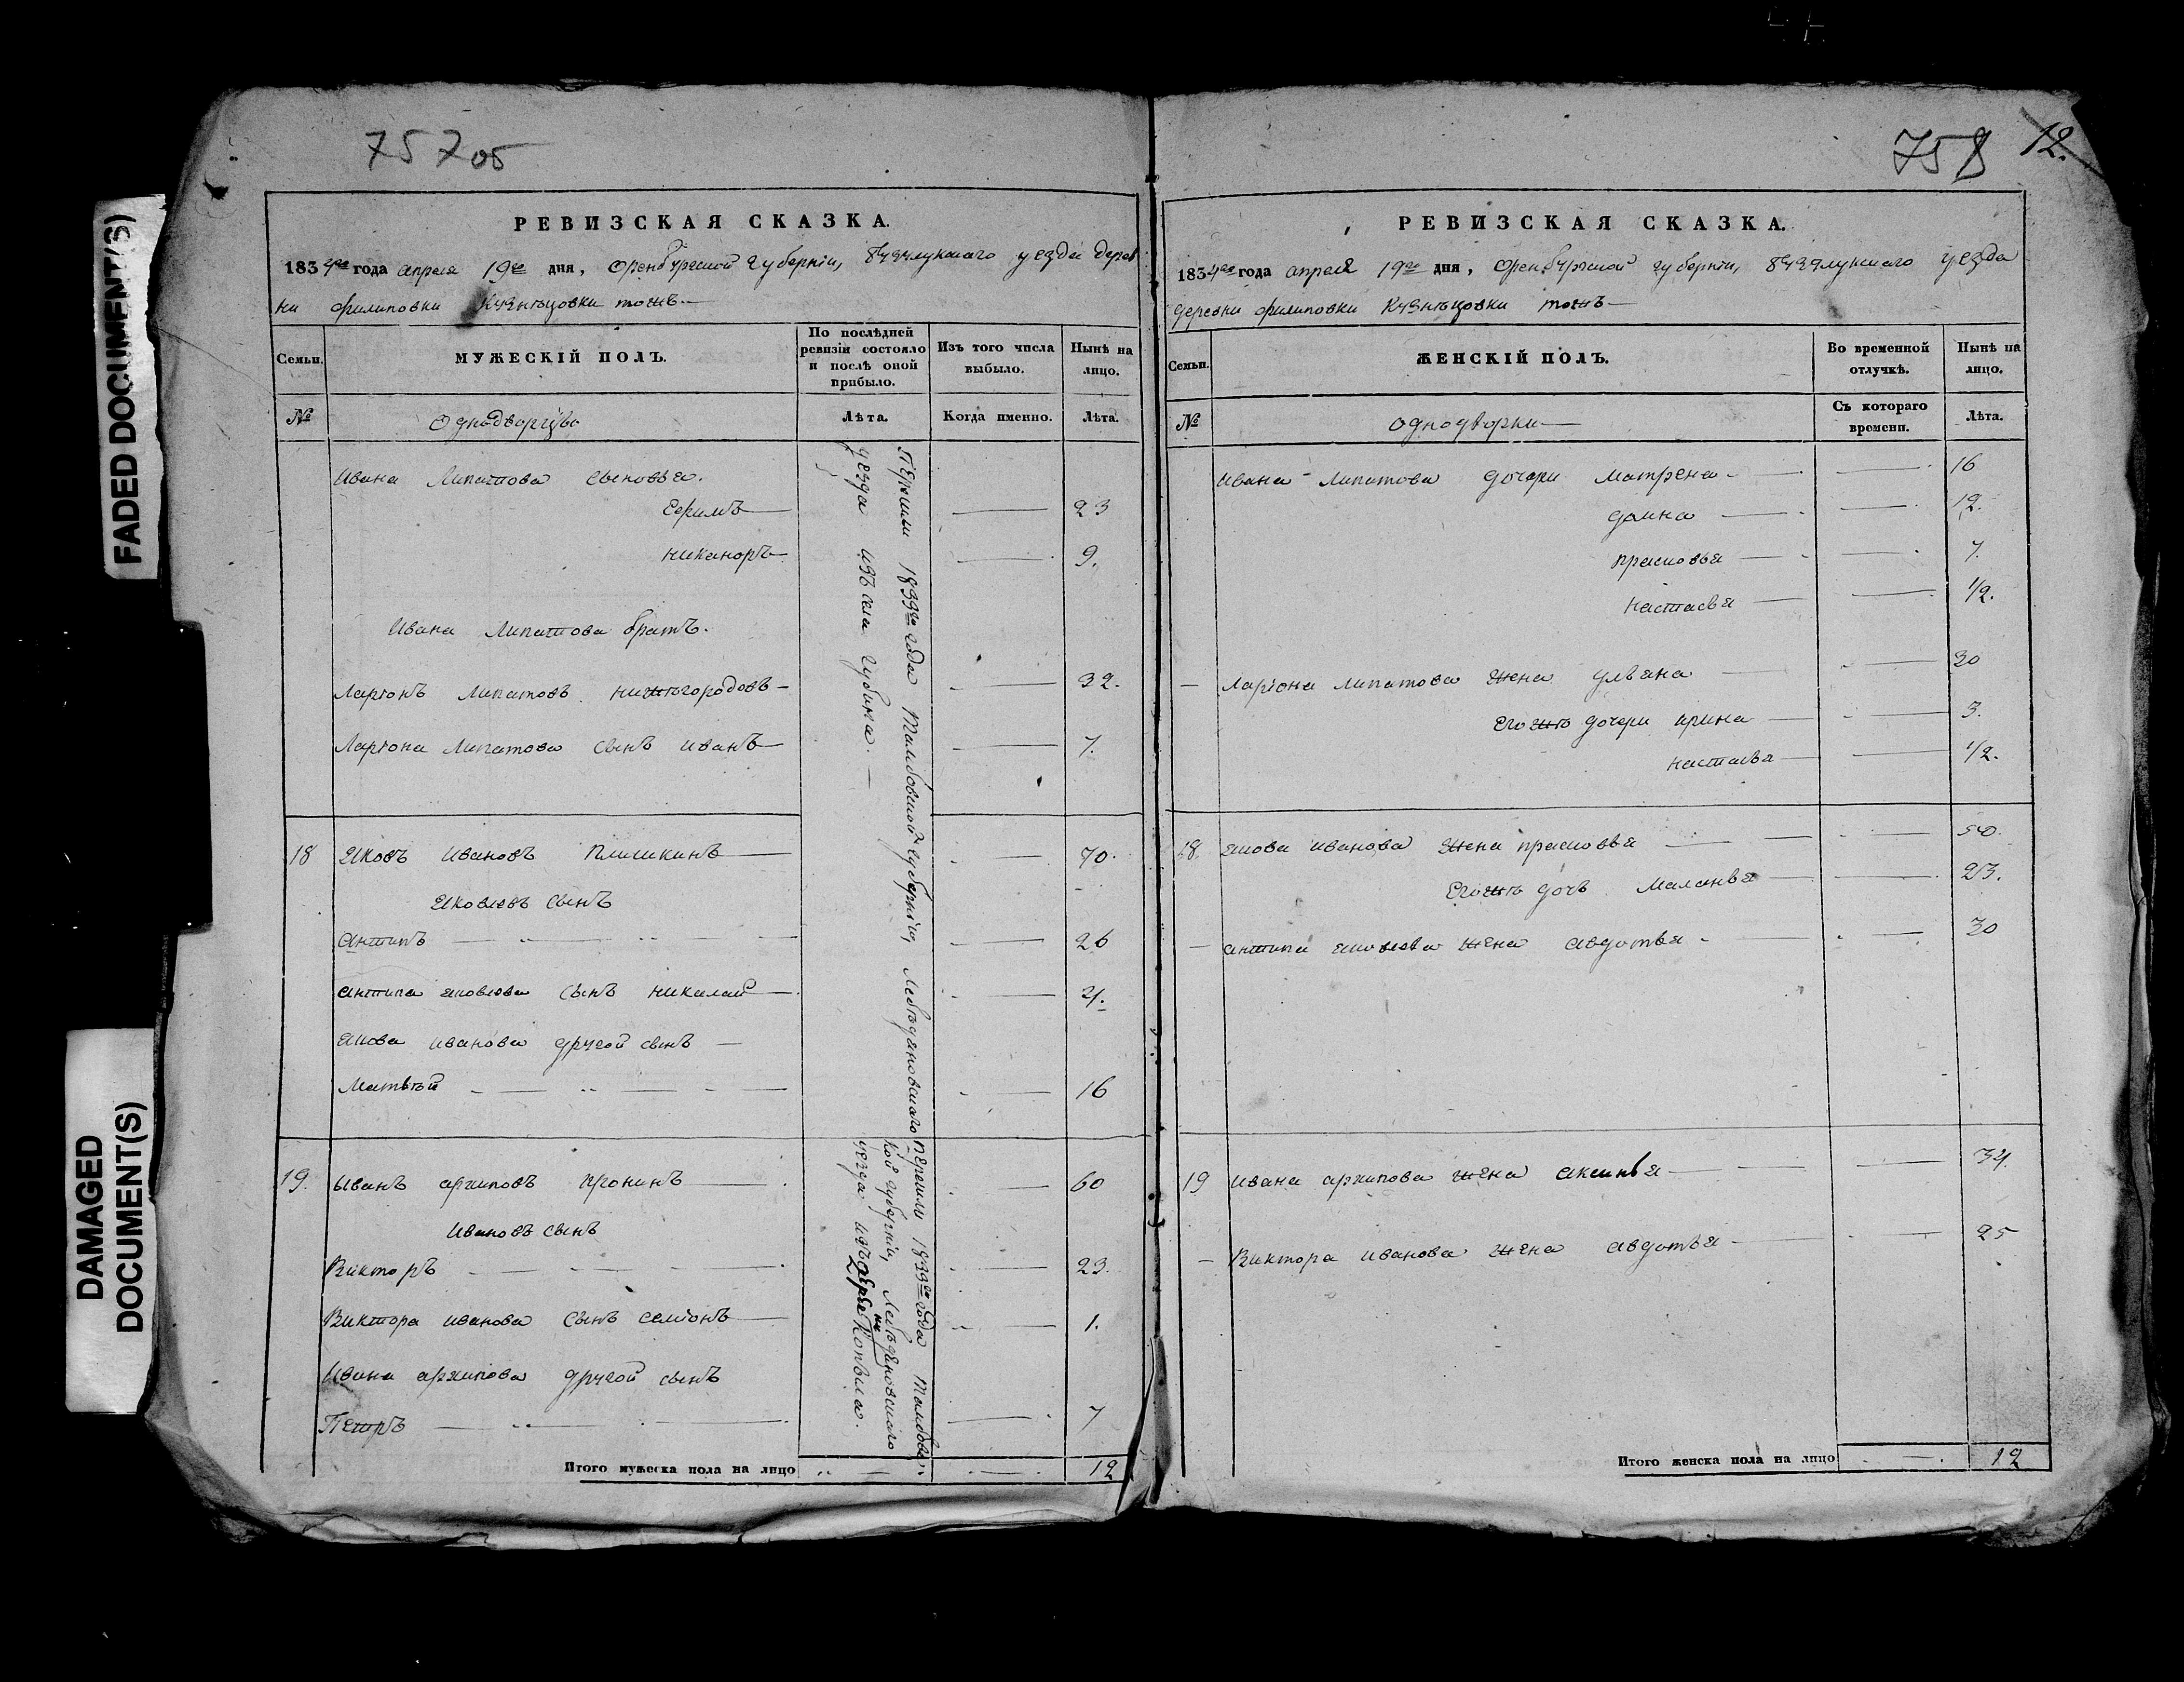 FADED DOCUMENT(S)
DAMAGED
DOCUMENT(S)
757об
РЕВИЗСКАЯ СКАЗКА.
1834го года апреля 19го дня, Оренбургской губернiи, бузулукскаго уезда дерев
ни филиповки Кузнѣцовки тожъ.
Семьи.
МУЖЕСКIЙ ПОЛЪ.
По послѣдней ревизiи состояло и послѣ оной прибыло.
Изъ того числа выбыло.
Нынѣ на лицо.
№
Однодворцы
Лѣта.
Когда именно.
Лѣта.
Перешли 1833го года Тамбовской губернiи, Лебѣдяновскаго
уезда изъ села губина.
Ивана Липатова сыновья.
Ефимъ 23
никаноръ 9.
Ивана Липатова братъ.
Ларiонъ Липатовъ нижѣгородовъ 32.
Ларiона Липатова сынъ иванъ 7.
18 Яковъ Ивановъ Плишкинъ 70.
Яковлевъ сынъ
антипъ 26
антипа яковлева сынъ николай 4.
якова иванова другой сынъ
Матвѣй 16
перешли 1833го года тамбовс
кой губернiи, Лебѣдяновскаго
уезда изъ дерев
ни
19. Иванъ архиповъ пронинъ 60
Ивановъ сынъ
Викторъ 23.
Виктора иванова сынъ семiонъ 1.
Ивана архипова другой сынъ
Петръ 7
Итого мужеска пола на лицо 12
758 12.
РЕВИЗСКАЯ СКАЗКА.
1834го года апреля 19го дня, Оренбургской губернiи, бузулукскаго уезда
деревни филиповки Кузнѣцовки тожъ
Семьи.
ЖЕНСКIЙ ПОЛЪ.
Во временной отлучкѣ.
Нынѣ на лицо.
№
Однодворки
Съ котораго времени.
Лѣта.
Ивана Липатова дочери матрена 16
домна 12.
прасковья 7.
настасья 1/2.
Ларiона Липатова жена ульяна 30
Егожъ дочери ирина 3.
настасья 1/2.
18. якова иванова жена прасковья 50.
Егожъ дочь Маланья 23.
антипа яковлева жена авдотья 30
19 Ивана архипова жена аксинья 34.
Виктора иванова жена авдотья 25
Итого женска пола на лицо 12